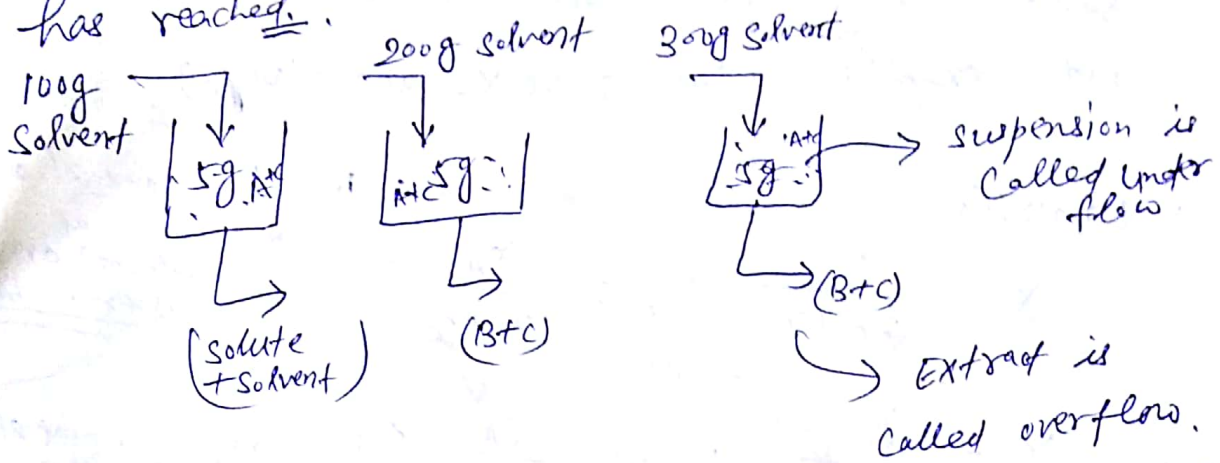 has reached.
200g solvent
300g solvent
100g
Solvent
5g A+C
A+C 5g
5g A+C
suspension is
called under
flow
(solute
+ solvent)
(B+C)
(B+C)
Extract is
called overflow.